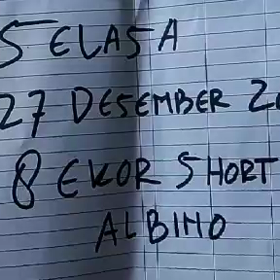 SELASA
27 DESEMBER 2
8 EKOR SHORT
ALBINO